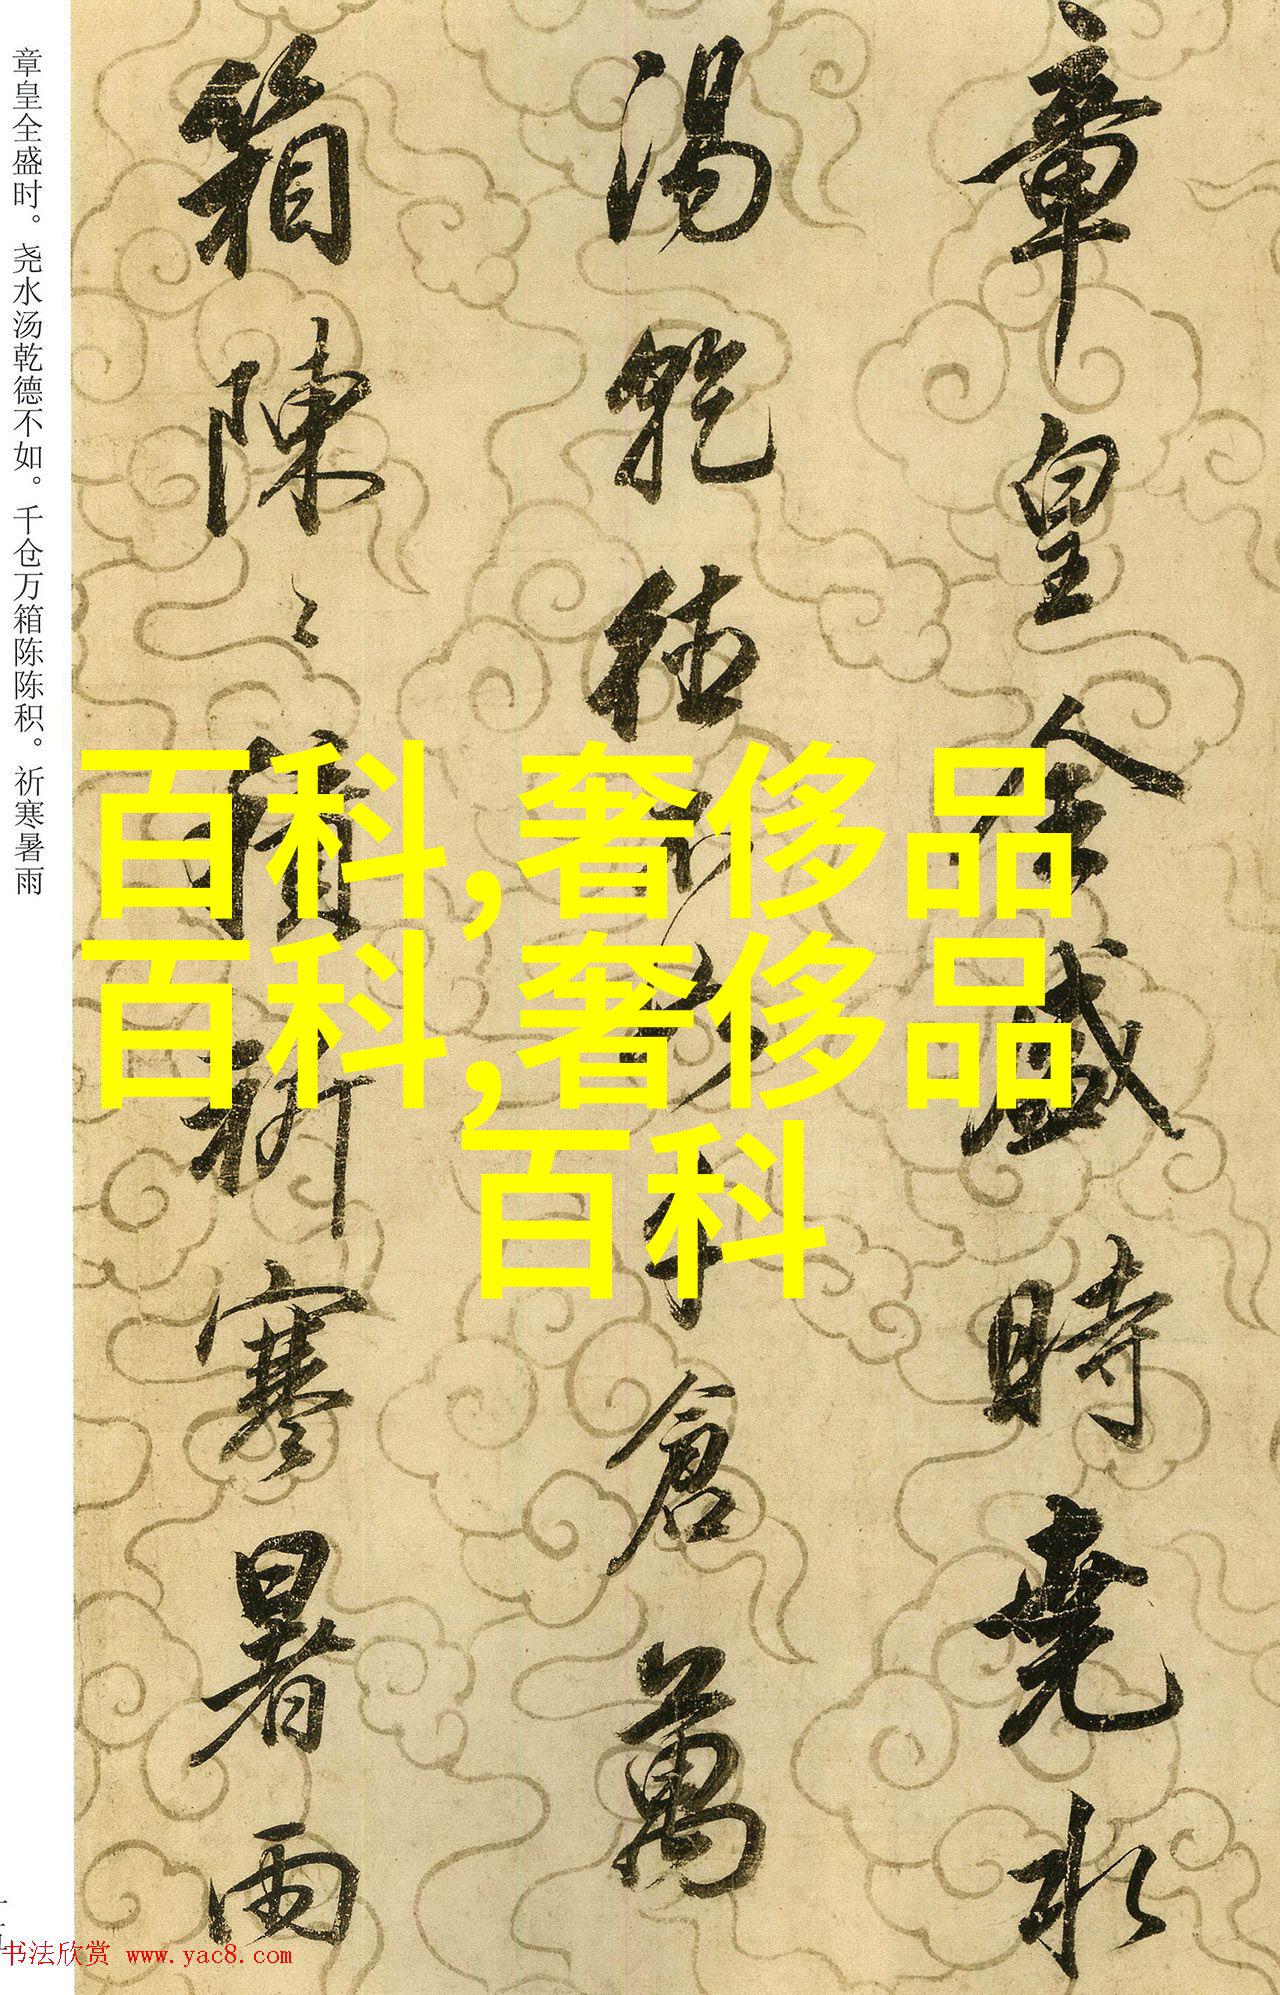 章皇全盛时。尧水汤乾德不如。千仓万箱陈陈积。祈寒暑雨
章皇全盛時堯水
湯乾德不如千倉萬
箱陳〻積祈寒暑雨
百科,奢侈品
百科,奢侈品
百科
书法欣赏 www.yac8.com